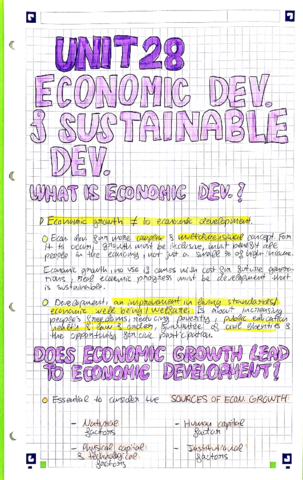 UNIT 28
ECONOMIC DEV.
& SUSTAINABLE
DEV.
WHAT IS ECONOMIC DEV.?
Economic growth ≠ to economic development.
Econ dev is a more complex & multidimensional concept. For
it to occur, growth must be inclusive, must benefit all
people in the economy, not just a small % of high income.
Economic growth no use if comes with cost for future genera-
tions, real economic progress must be development that
is sustainable.
Development: an improvement in living standards/
economic well being / welfare. Is about increasing
people's freedoms, reducing poverty, public education
law & order, guarantee of civil liberties &
the opportunity for participation.
DOES ECONOMIC GROWTH LEAD
TO ECONOMIC DEVELOPMENT?
Essential to consider the SOURCES OF ECON GROWTH:
- Natural factors
- Human capital factor
- Physical capital & technological factors
- Institutional factors